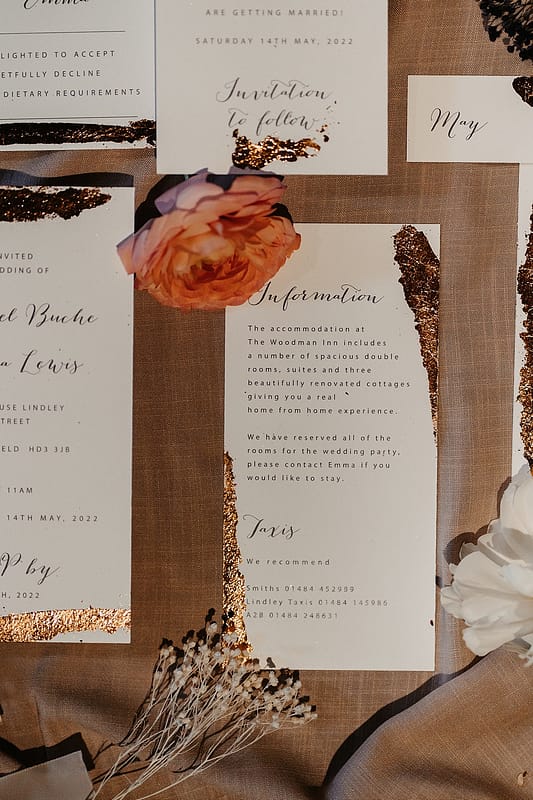 Emma
LIGHTED TO ACCEPT
ETFULLY DECLINE
DIETARY REQUIREMENTS
ARE GETTING MARRIED!
SATURDAY 14TH MAY, 2022
Invitation
to follow
May
NVITED
DDING OF
el Buche
a Lewis
USE LINDLEY
TREET
IELD HD3 3JB
11AM
14TH MAY, 2022
P by
H, 2022
Information
The accommodation at
The Woodman Inn includes
a number of spacious double
rooms, suites and three
beautifully renovated cottages
giving you a real
home from home experience.
We have reserved all of the
rooms for the wedding party,
please contact Emma if you
would like to stay.
Taxis
We recommend
Smiths 01484 452989
Lindley Taxis 01484 145986
A2B 01484 248631